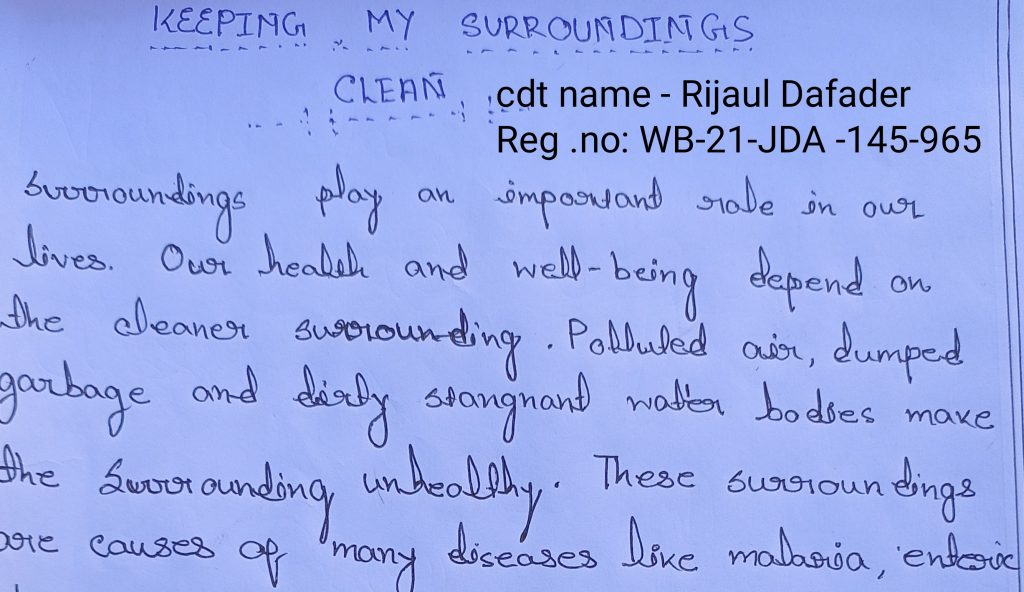 KEEPING MY SURROUNDINGS
CLEAN
cdt name - Rijaul Dafader
Reg .no: WB-21-JDA -145-965
surroundings play an important role in our
lives. Our health and well-being depend on
the cleaner surrounding. Polluted air, dumped
garbage and dirty stangnant water bodies make
the surrounding unhealthy. These surroundings
are causes of many diseases like malaria, enteric